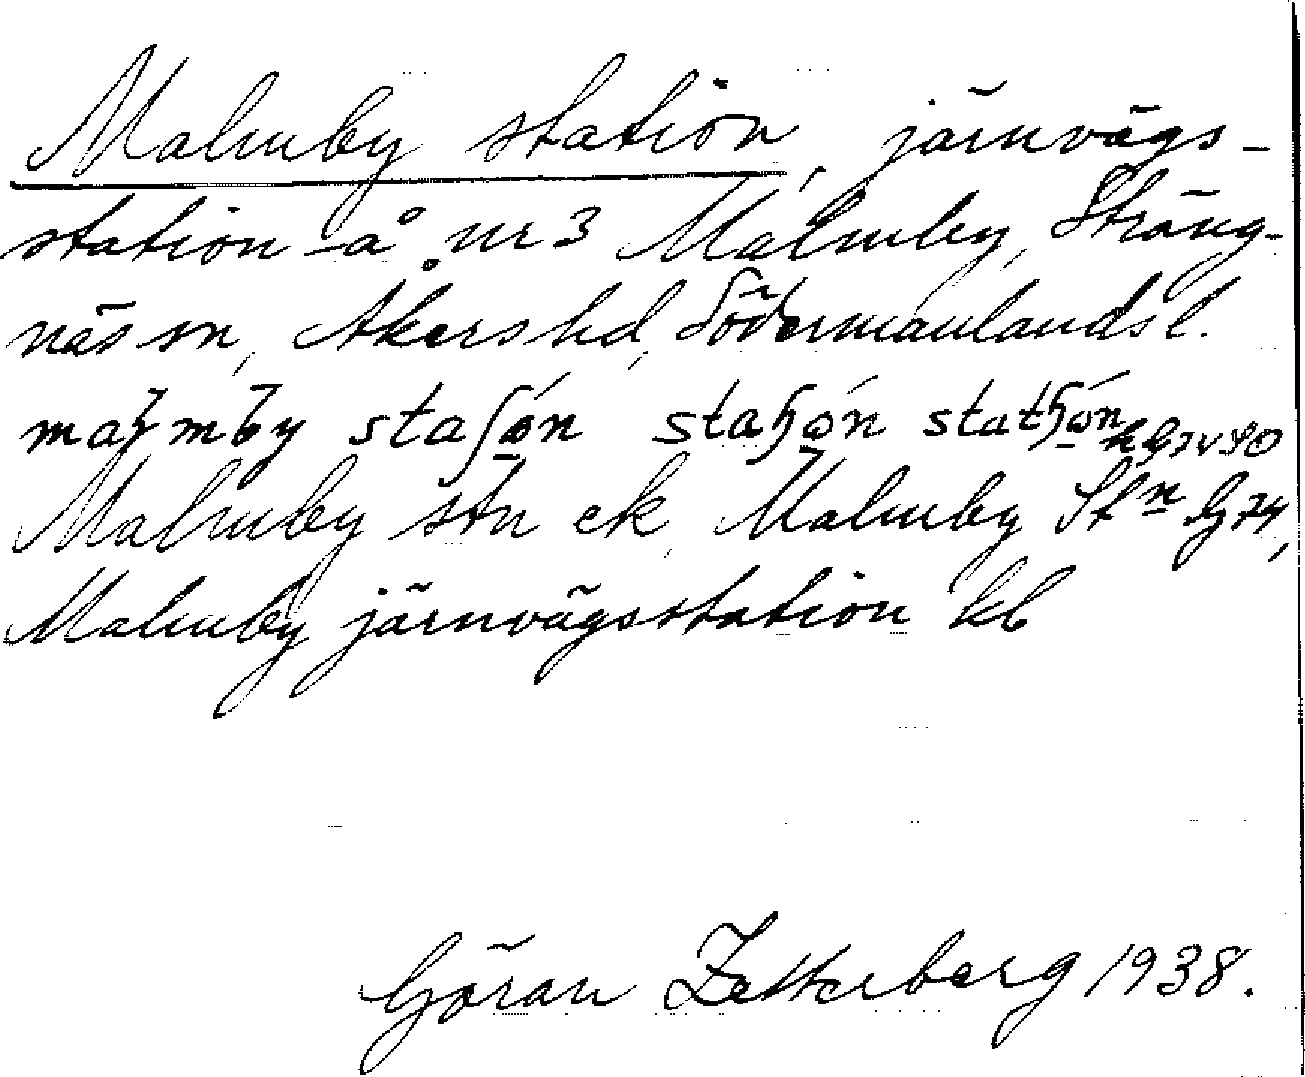 Malmby station, järnvägs-
station å nr 3 Malmby, Sträng-
näs sn, Åkers hd, Södermanlands l.
Malmby stn ek, Malmby Stn G 74,
Malmby järnvägsstation kb
Göran Zetterberg 1938.